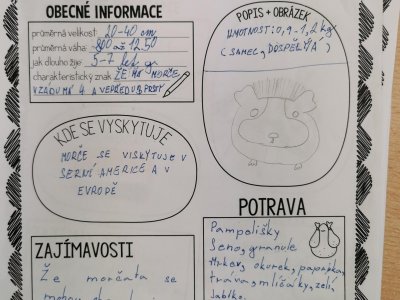 OBECNÉ INFORMACE
průměrná velikost: 20-40 cm
průměrná váha: 800 až 1250
jak dlouho žije: 5-7 let gr
charakteristický znak ŽE MÁ MORČE,
VZADU MÁ 4 A VEPŘEDU 3 PRSTY
POPIS + OBRÁZEK
HMOTNOST: 0,9-1,2 kg
(SAMEC, DOSPĚLÝ)
KDE SE VYSKYTUJE
MORČE SE VISKYTUJE V
SERNÍ AMERICE A V
EVROPĚ
POTRAVA
Pampelišky
Seno, granule
Mrkev, okurek, paprika,
tráva, mlíčáky, zelí,
Jablko
ZAJÍMAVOSTI
Že morčata se
mohou